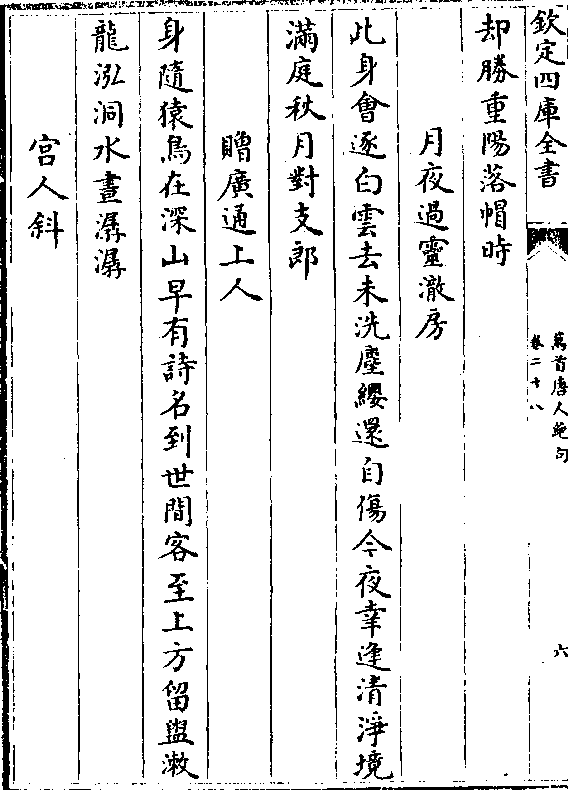 欽定四庫全書
萬首唐人絶句
卷二十八
六
却勝重陽落帽時
月夜過靈澈房
此身會逐白雲去未洗塵纓還自傷今夜幸逢清淨境
滿庭秋月對支郎
贈廣通上人
身隨猿鳥在深山早有詩名到世間客至上方留盥漱
龍泓洞水晝潺潺
宮人斜